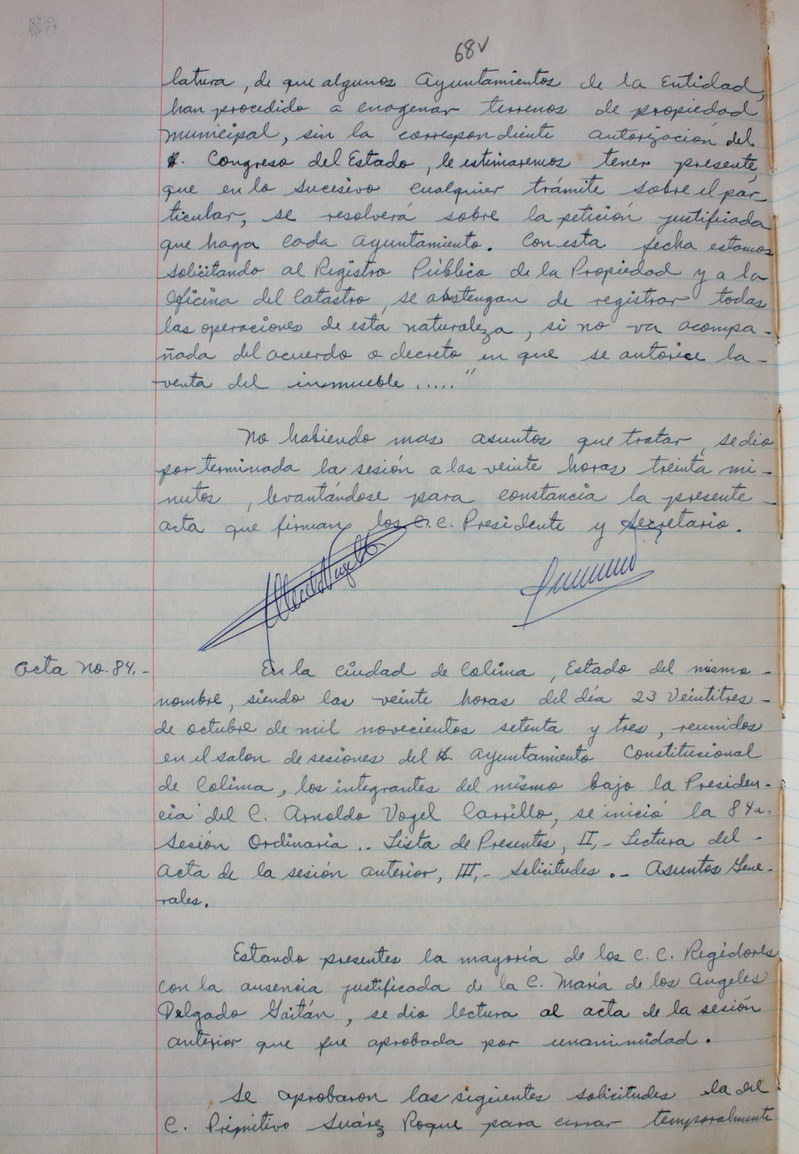 68v
latura, de que algunos Ayuntamientos de la Entidad,
han procedido a enagenar terrenos de propiedad
Municipal, sin la correspondiente autorización del
H. Congreso del Estado, le estimaremos tener presente,
que en lo sucesivo cualquier trámite sobre el par-
ticular, se resolverá sobre la petición justificada
que haga cada Ayuntamiento. Con esta fecha estamos
solicitando al Registro Público de la Propiedad y a la
Oficina del Catastro, se abstengan de registrar todas
las operaciones de esta naturaleza, si no va acompa-
ñada del acuerdo o decreto en que se autorice la-
venta del inmueble ....."
No habiendo mas asuntos que tratar, se dio
por terminada la sesión a las veinte horas treinta mi-
nutos, levantándose para constancia la presente-
acta que firman los C.C. Presidente y Secretario.
Acta No. 84.-
En la Ciudad de Colima, Estado del mismo-
nombre, siendo las veinte horas del día 23 Veintitres-
de octubre de mil novecientos setenta y tres, reunidos
en el salon de sesiones del H. Ayuntamiento Constitucional
de Colima, los integrantes del mismo bajo la Presiden-
cia del C. Arnoldo Vogel Carrillo, se inició la 84a.
Sesión Ordinaria.- Lista de Presentes, II.- Lectura del-
Acta de la sesión anterior, III.- Solicitudes.- Asuntos Gene-
rales.
Estando presentes la mayoría de los C.C. Regidores
con la ausencia justificada de la C. María de los Angeles
Delgado Gaitán, se dio lectura al acta de la sesión
anterior que fue aprobada por unanimidad.
Se aprobaron las siguientes solicitudes la del
C. Primitivo Suárez Roque para cerrar temporalmente